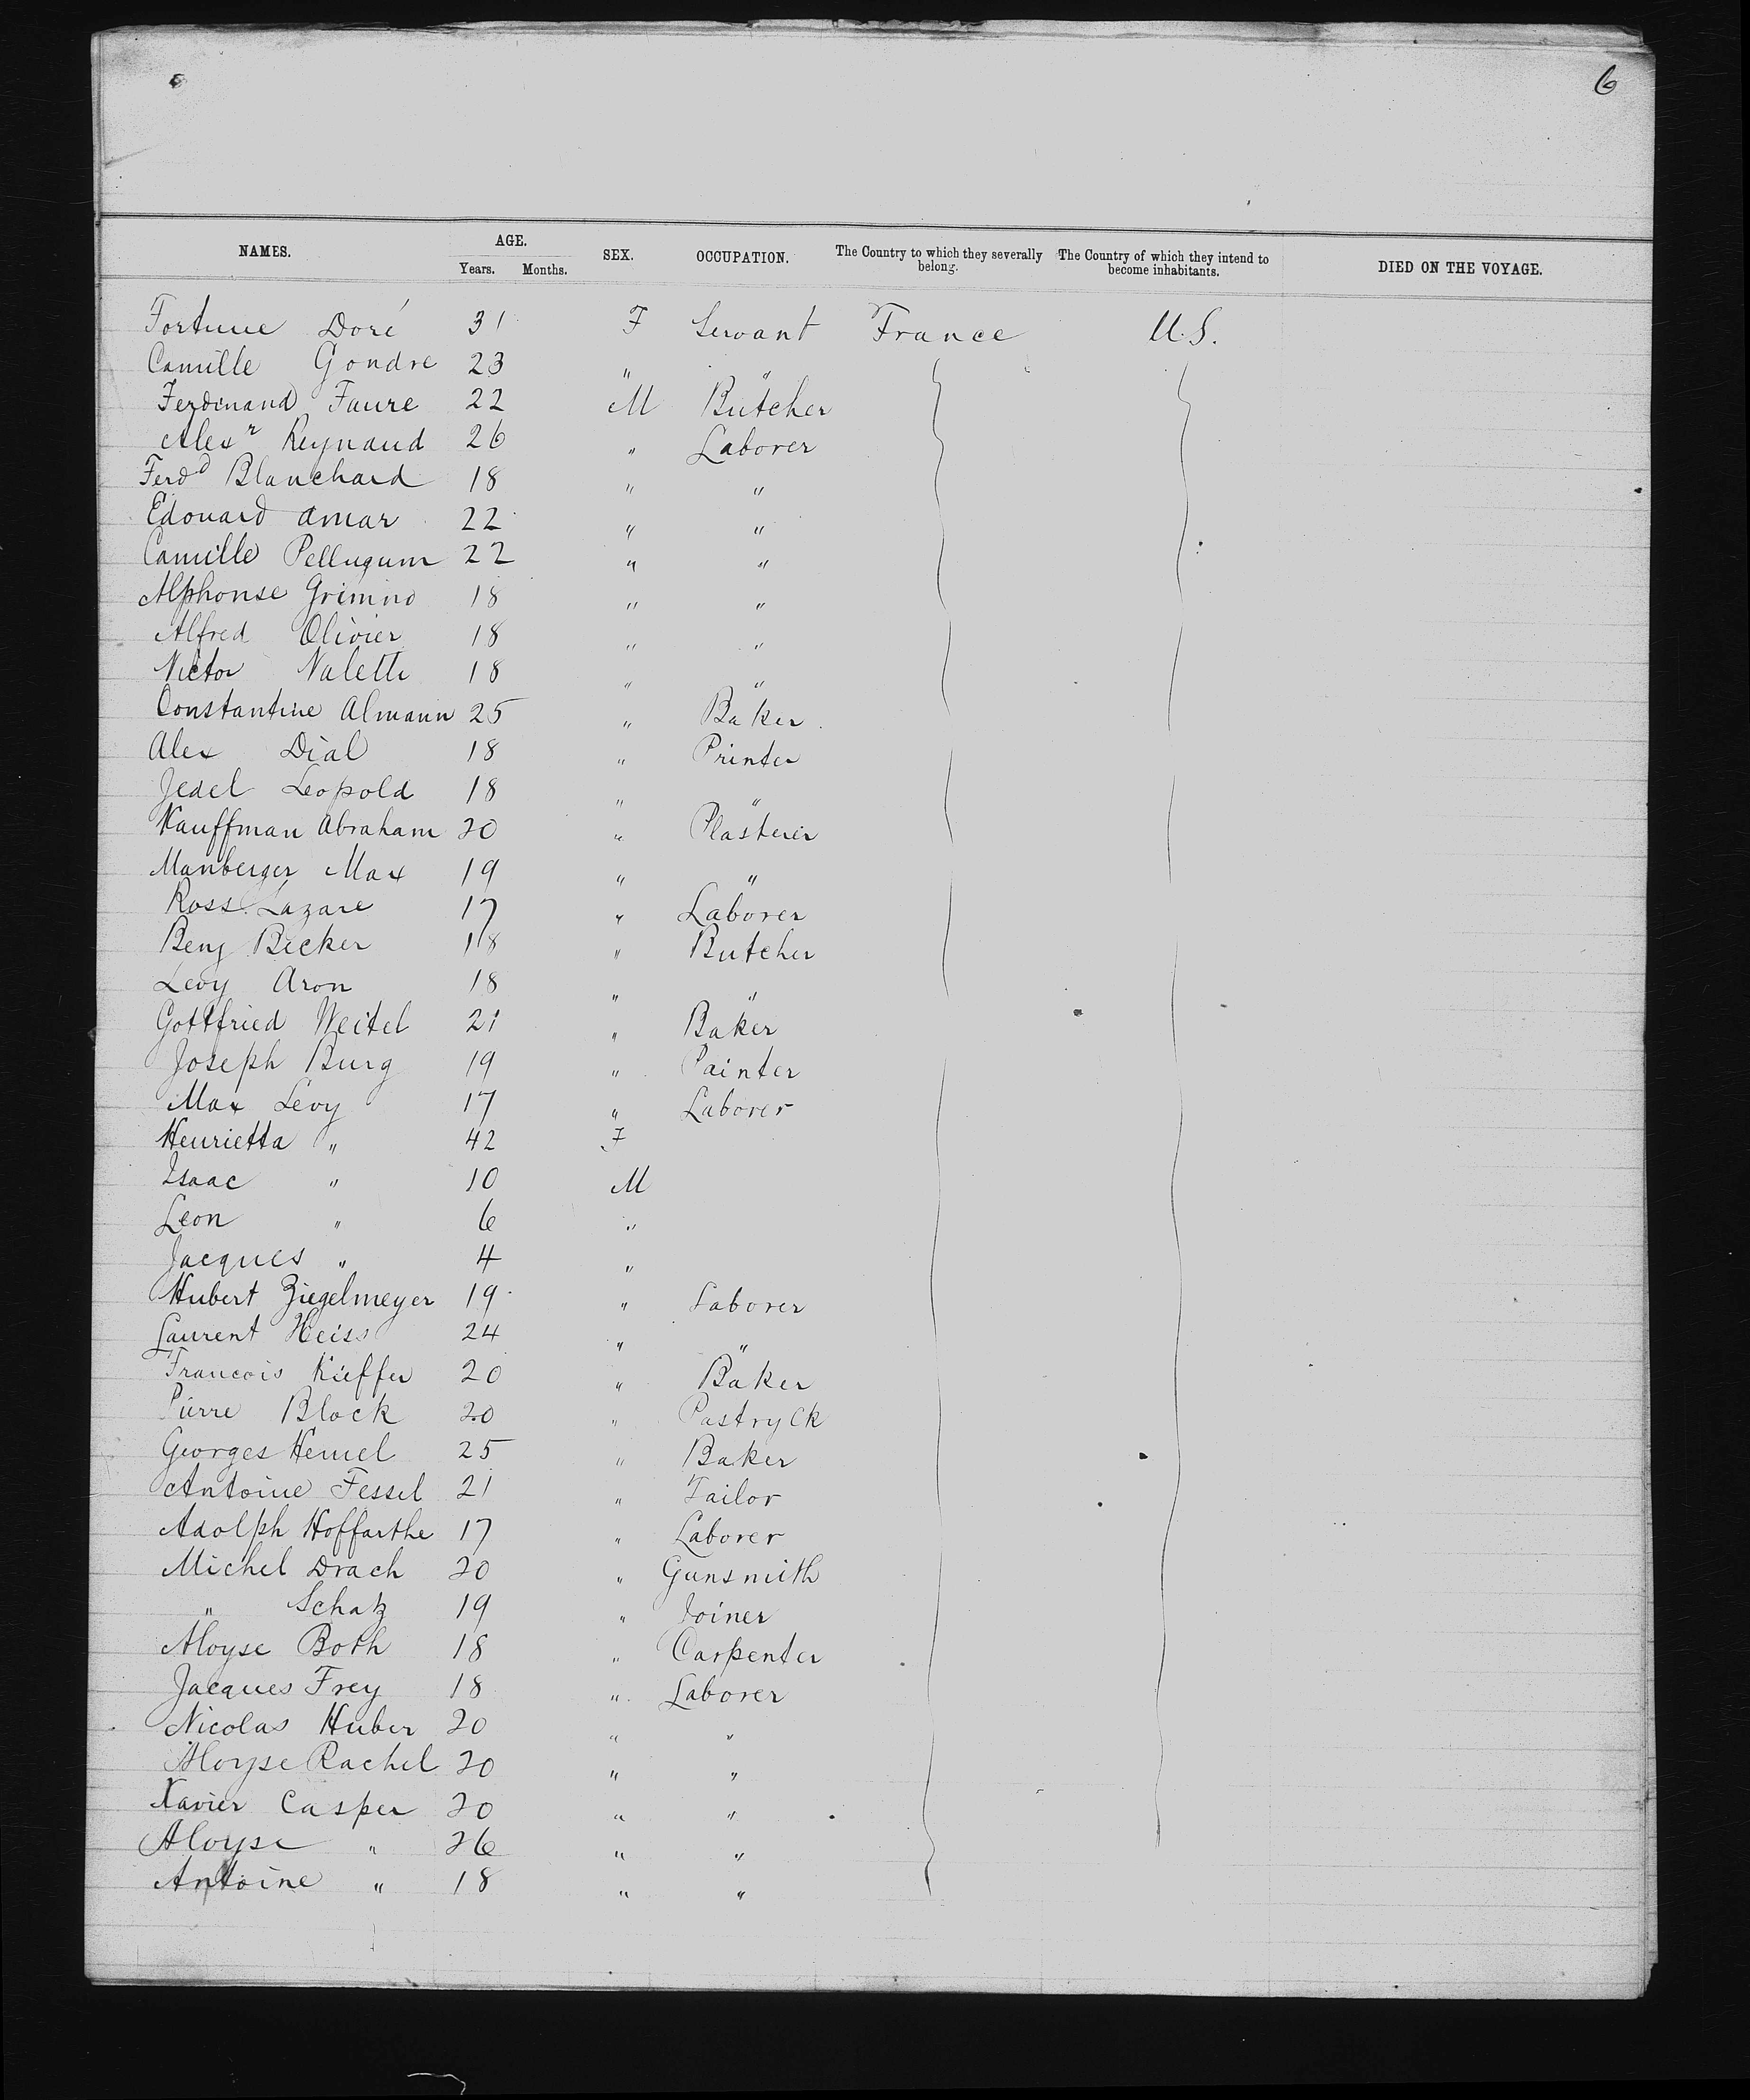 6
NAMES. AGE. Years. Months. SEX. OCCUPATION. The Country to which they severally belong. The Country of which they intend to become inhabitants. DIED ON THE VOYAGE.
Fortune Doré 31 F Servant France U.S.
Camille Gondre 23 " "
Ferdinand Faure 22 M Butcher
Alexr Reynaud 26 " Laborer
Ferdd Blanchard 18 " "
Edouard Amar 22 " "
Camille Pellugum 22 " "
Alphonse Grimno 18 " "
Alfred Olivier 18 " "
Victor Nalette 18 " "
Constantine Almann 25 " Baker
Alex Dial 18 " Printer
Jedel Leopold 18 " "
Kauffman Abraham 20 " Plasterer
Manberger Max 19 " "
Ross Lazare 17 " Laborer
Benj Becker 18 " Butcher
Levy Aron 18 " "
Gottfried Weitel 21 " Baker
Joseph Burg 19 " Painter
Max Levy 17 " Laborer
Henrietta " 42 F
Isaac " 10 M
Leon " 6 "
Jacques " 4 "
Hubert Ziegelmeyer 19 " Laborer
Laurent Heiss 24 " "
Francois Kieffer 20 " Baker
Pierre Block 20 " Pastry Ck
Georges Hemel 25 " Baker
Antoine Fessel 21 " Tailor
Adolph Hoffarthe 17 " Laborer
Michel Drach 20 " Gunsmith
" Schatz 19 " Joiner
Aloyse Both 18 " Carpenter
Jacques Frey 18 " Laborer
Nicolas Huber 20 " "
Aloyse Rachel 20 " "
Xavier Casper 20 " "
Aloyse " 26 " "
Antoine " 18 " "